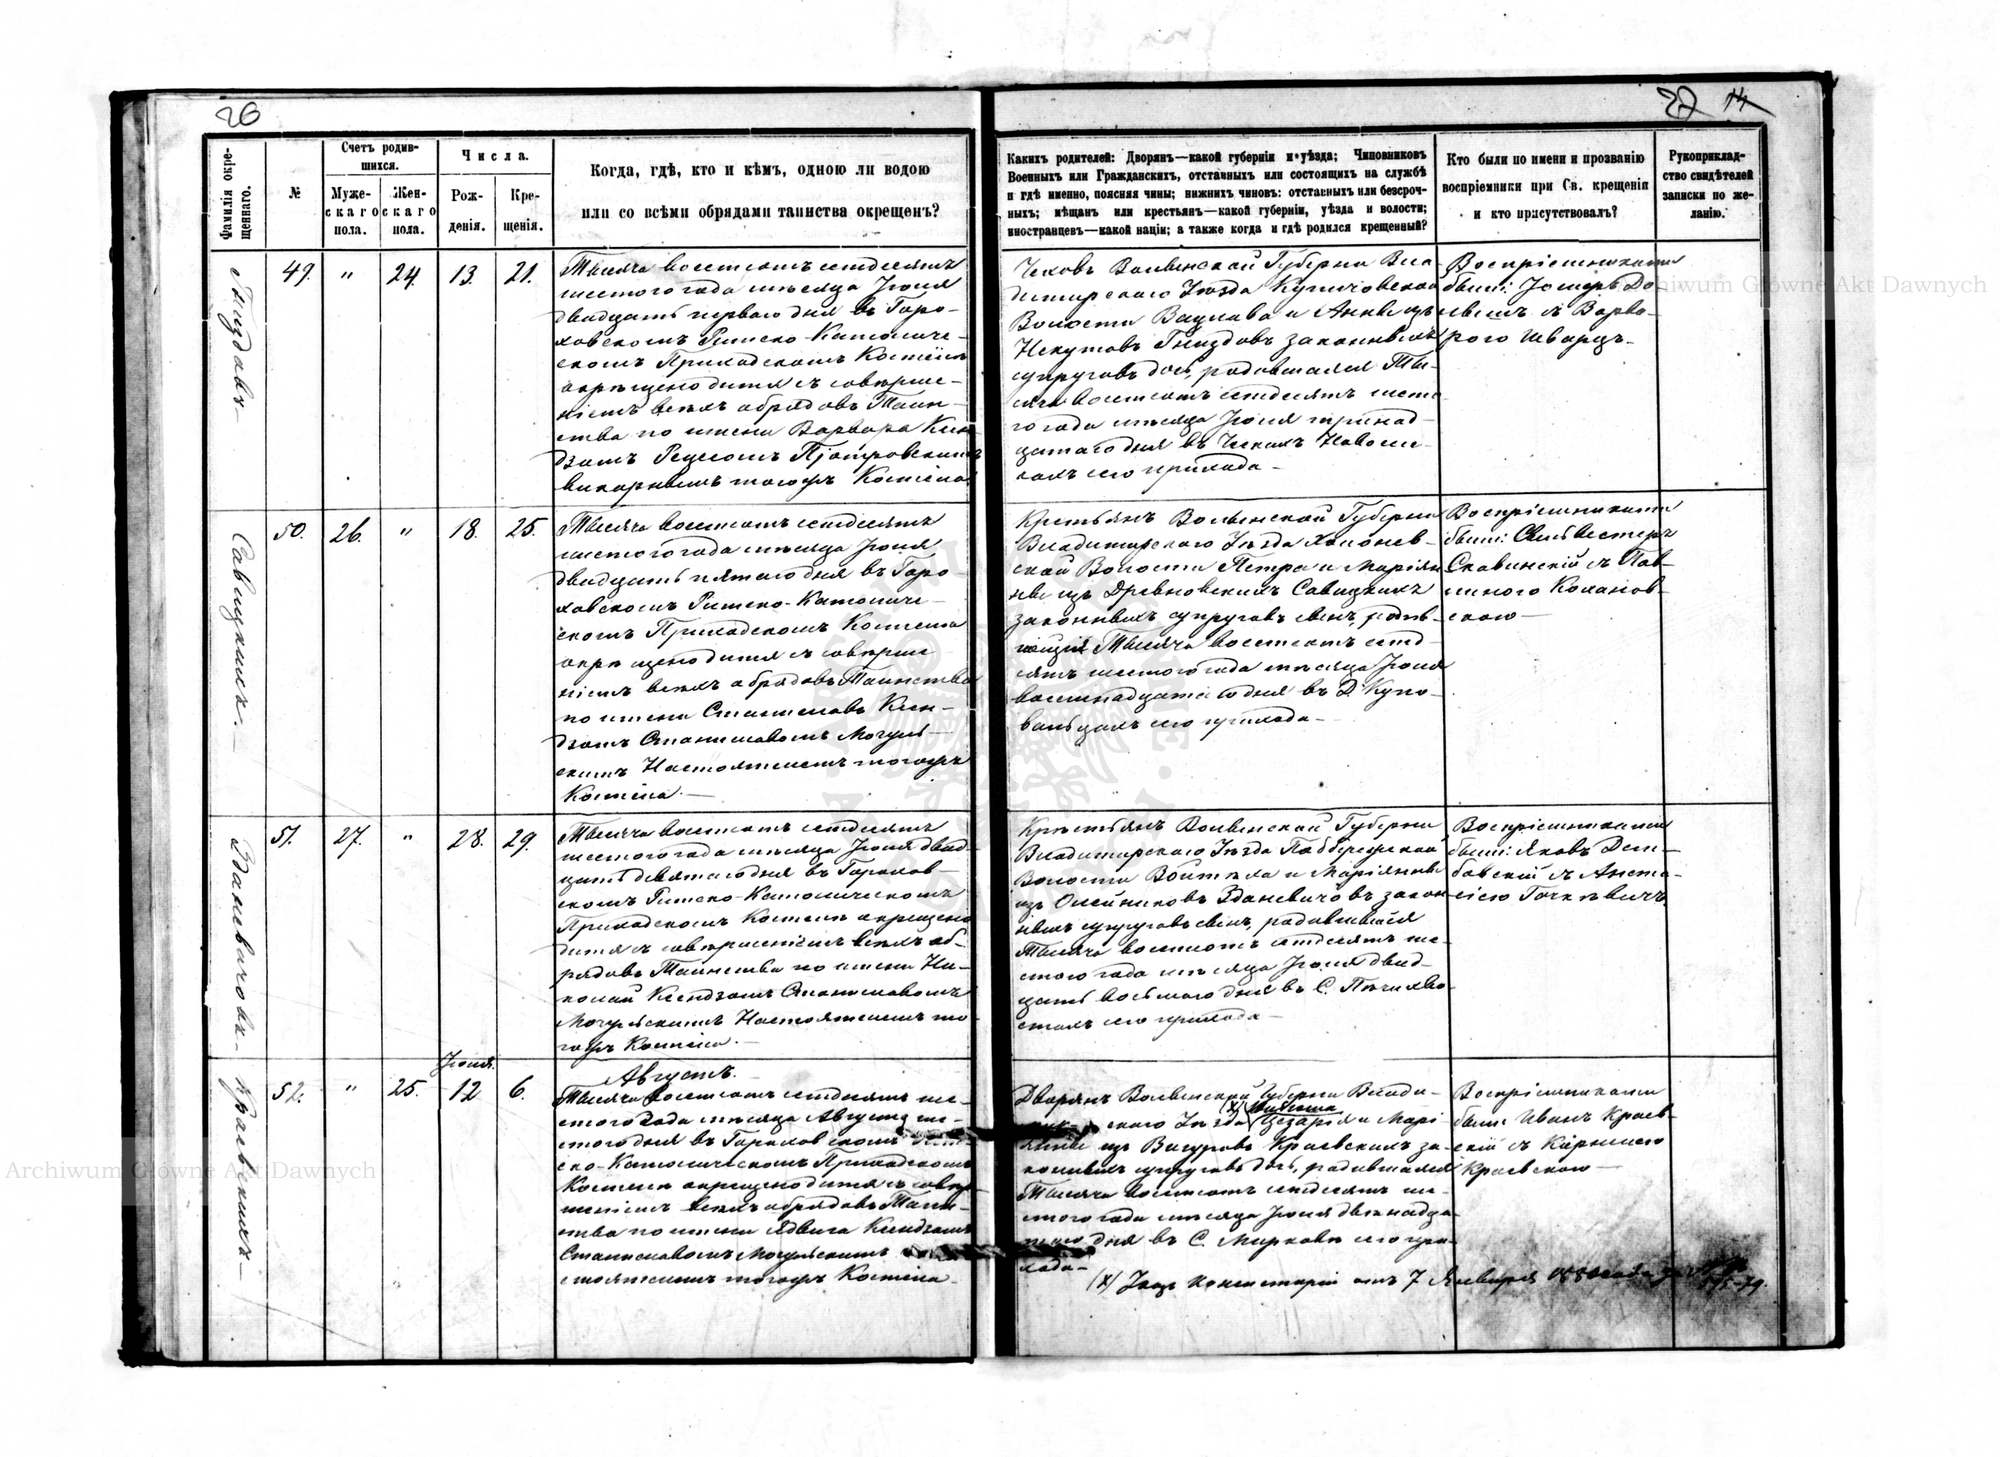 26
27 14
Фамилія окре-
щеннаго.
№
Счетъ родив-
шихся.
Муже-
скаго
пола.
Жен-
скаго
пола.
Числа.
Рож-
денія.
Кре-
щенія.
Когда, гдѣ, кто и кѣмъ, одною ли водою
или со всѣми обрядами таинства окрещенъ?
Какихъ родителей: Дворянъ—какой губерніи и уѣзда; Чиновниковъ
Военныхъ или Гражданскихъ, отставныхъ или состоящихъ на службѣ
и гдѣ именно, поясняя чины; нижнихъ чиновъ: отставныхъ или безсроч-
ныхъ; мѣщанъ или крестьянъ—какой губерніи, уѣзда и волости;
иностранцевъ—какой націи; а также когда и гдѣ родился крещенный?
Кто были по имени и прозванію
воспріемники при Св. крещеніи
и кто присутствовалъ?
Рукоприклад-
ство свидѣтелей
записки по же-
ланію.
Гнѣздовъ
49. " 24. 13. 21.
Тысяча восемьсотъ семдесятъ
шестого года мѣсяца Іюля
двадцать перваго дня въ Горо-
ховскомъ Римско-Католиче-
скомъ Приходскомъ Костелѣ
окрещено дитя съ соверше-
ніемъ всѣхъ обрядовъ Таин-
ства по имени Варвара Ксен-
дзомъ
викарнымъ тогожъ Костела
Чеховъ Волынской Губерніи Вла-
димирскаго Уѣзда Купичовской
Волости Вацлава и Анны изъ
Гнѣздовъ законныхъ
супруговъ дочь, родившаяся Ты-
сяча восемьсотъ семдесятъ шесто-
го года мѣсяца Іюля тринад-
цатаго дня въ Чехахъ Новоси-
кахъ сего прихода—
Воспріемниками
были: Іосифъ До-
съ Варва-
рою Шварцъ—
Савицкихъ.—
50. 26. " 18. 25.
Тысяча восемьсотъ семдесятъ
шестого года мѣсяца Іюля
двадцать пятаго дня въ Горо-
ховскомъ Римско-Католиче-
скомъ Приходскомъ Костелѣ
окрещено дитя съ соверше-
ніемъ всѣхъ обрядовъ Таинства
по имени Станиславъ Ксен-
дзомъ Станиславомъ Могуль-
скимъ Настоятелемъ тогожъ
Костела.—
Крестьянъ Волынской Губерніи
Владимирскаго Уѣзда Хоронев-
ской Волости Петра и Маріян-
ны изъ Древновскихъ Савицкихъ
законныхъ супруговъ сынъ, родив-
шійся Тысяча восемьсотъ семд-
сятъ шестого года мѣсяца Іюля
восемнадцатаго дня въ Д. Купо-
вальцахъ сего прихода—
Воспріемниками
были: Сильвестеръ
Славинскій съ Пав-
линою Коханов-
скою—
Здановичовъ—
51. 27. " 28. 29.
Тысяча восемьсотъ семдесятъ
шестого года мѣсяца Іюля двад-
цать девятаго дня въ Горохов-
скомъ Римско-Католическомъ
Приходскомъ Костелѣ окрещено
дитя съ совершеніемъ всѣхъ об-
рядовъ Таинства по имени Ни-
колай Ксендзомъ Станиславомъ
Могульскимъ Настоятелемъ то-
гожъ Костела.—
Крестьянъ Волынской Губерніи
Владимирскаго Уѣзда Подберезской
Волости Войтѣха и Маріянны
изъ Олейниковъ Здановичовъ закон-
ныхъ супруговъ сынъ, родившійся
Тысяча восемьсотъ семдесятъ ше-
стого года мѣсяца Іюля двад-
цать восьмаго дня въ С. Печихво-
стахъ сего прихода—
Воспріемниками
были: Яковъ Дем-
бовскій съ Анста-
сіею Гочкевичъ
Краевскихъ—
Іюля.
52. " 25. 12 6.
Августъ.
Тысяча восемьсотъ семдесятъ ше-
стого года мѣсяца Августа ше-
стого дня въ Гороховскомъ Рим-
ско-Католическомъ Приходскомъ
Костелѣ окрещено дитя съ совер-
шеніемъ всѣхъ обрядовъ Таин-
ства по имени Ядвига Ксендзомъ
Станиславомъ Могульскимъ
стоятелемъ тогожъ Костела.
Дворянъ Волынской Губерніи Влади-
скаго Уѣзда (х) Цезарія и Марі-
янны изъ Вигуровъ Краевскихъ за-
конныхъ супруговъ дочь, родившаяся
Тысяча восемьсотъ семдесятъ ше-
стого года мѣсяца Іюля двѣнадца-
таго дня въ С. Мирковѣ сего при-
хода—
(х) Указъ Консисторіи отъ 7 Января 1880 года за №
Воспріемниками
были: Иванъ Краев-
скій съ Карлиною
Краевскою—
Archiwum Główne Akt Dawnych
Archiwum Główne Akt Dawnych